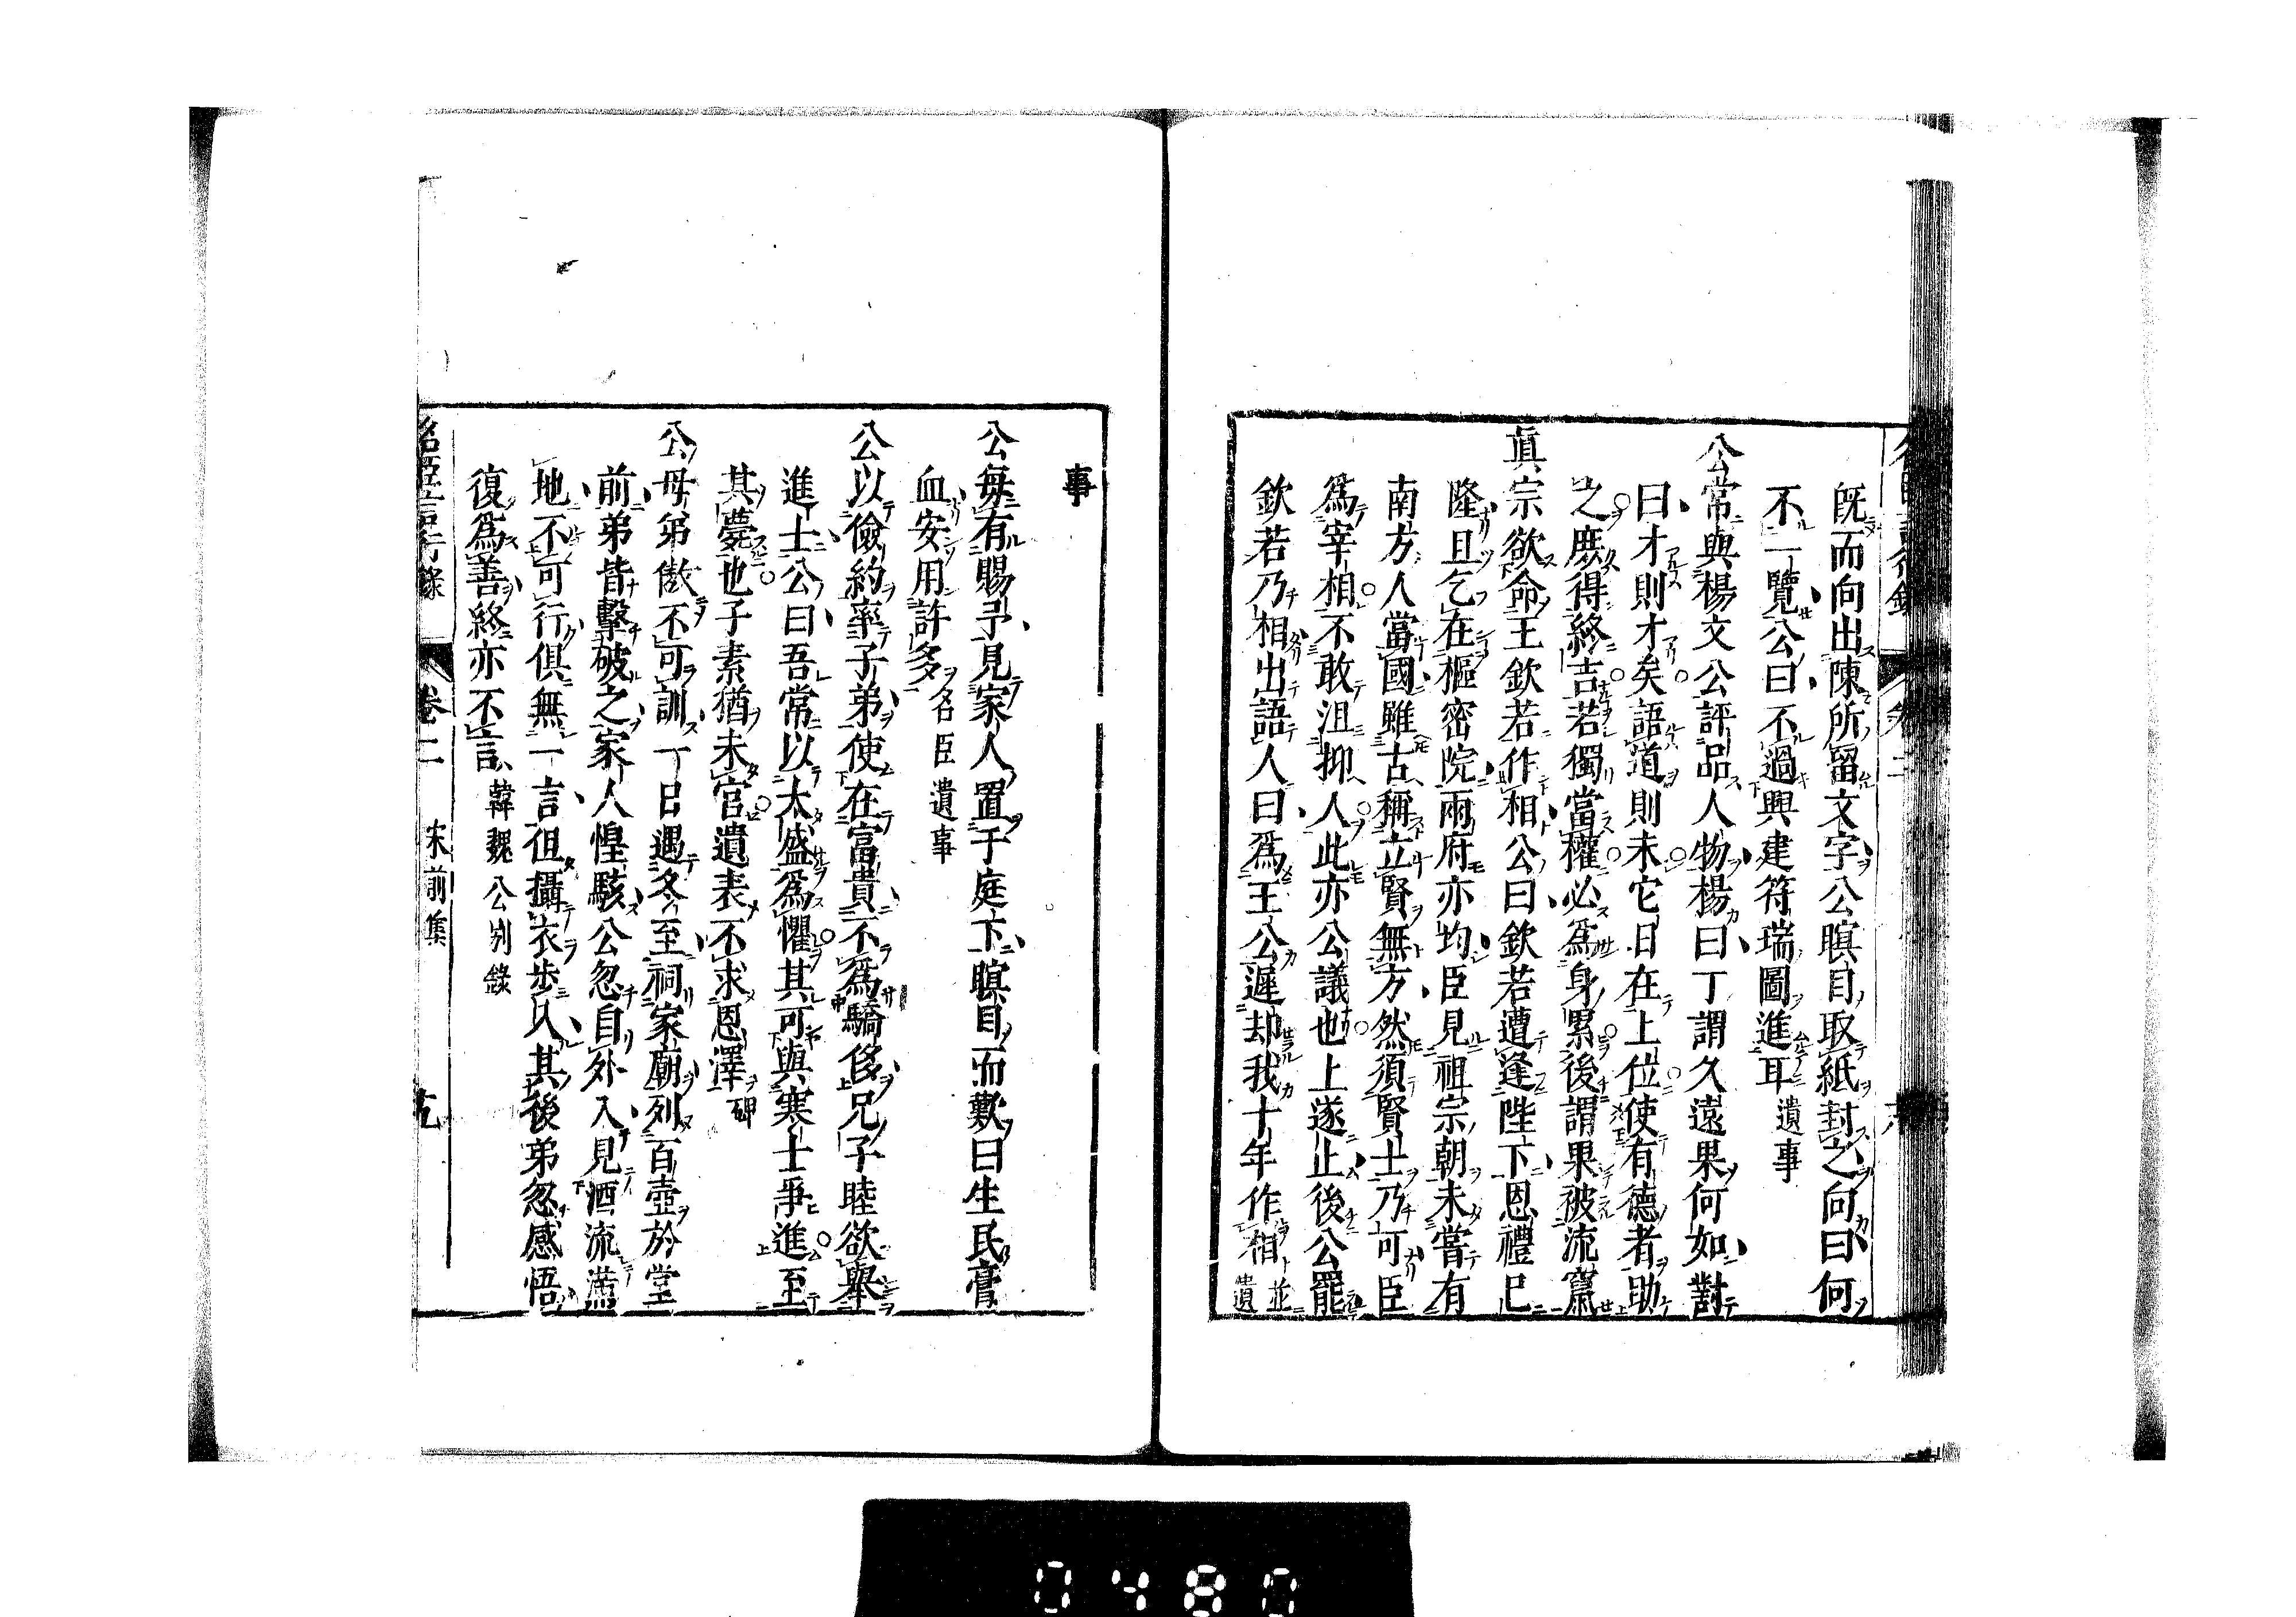 既而向出陳所留文字公瞑目取紙封之向曰何
不一覽公曰不過興建符瑞圖進耳遺事
公常與楊文公評品人物楊曰丁謂久遠果何如對
曰才則才矣語道則未它日在上位使有德者助
之庶得終吉若獨當權必爲身累後謂果被流竄
眞宗欲命王欽若作相公曰欽若遭逢陛下恩禮已
隆且乞在樞密院兩府亦均臣見祖宗朝未嘗有
南方人當國雖古稱立賢無方然須賢士乃可臣
爲宰相不敢沮抑人此亦公議也上遂止後公罷
欽若乃相出語人曰爲王公遲却我十年作相並遺
事
公每有賜予見家人置于庭下瞑目而歎曰生民膏
血安用許多名臣遺事
公以儉約率子弟使在富貴不爲驕侈兄子睦欲舉
進士公曰吾常以太盛爲懼其可與寒士爭進至
其薨也子素猶未官遺表不求恩澤碑
公母弟傲不可訓一日遇冬至祠家廟列百壺於堂
前弟皆擊破之家人惶駭公忽自外入見酒流滿
地不可行俱無一言但攝衣步入其後弟忽感悟
復爲善終亦不言韓魏公別錄
名臣言行錄 卷二 宋前集